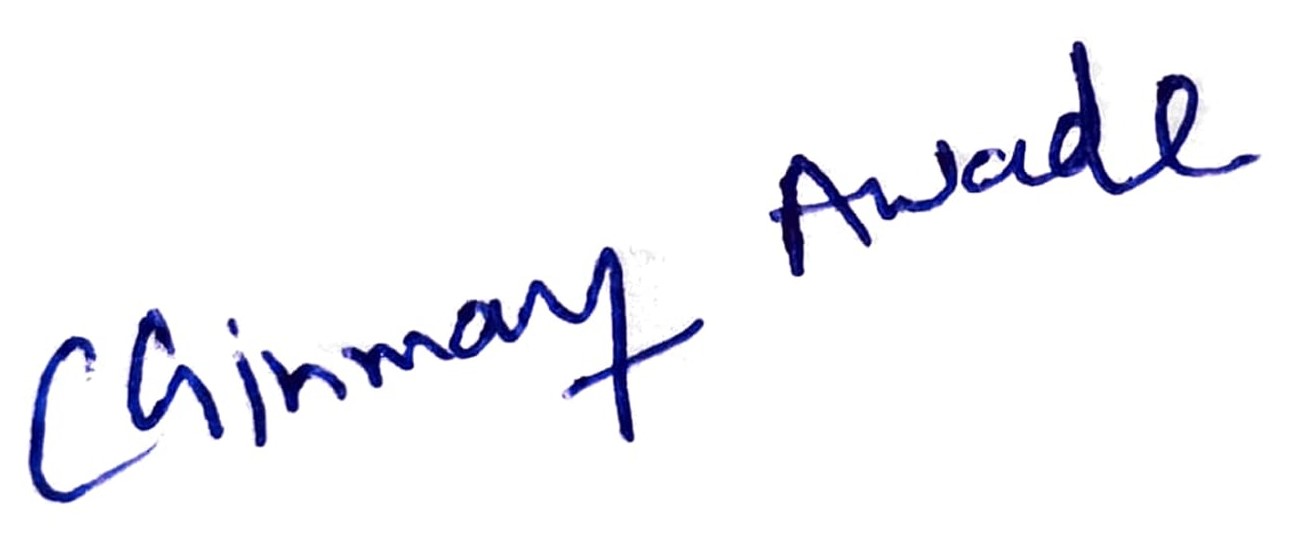 Chinmay Awade